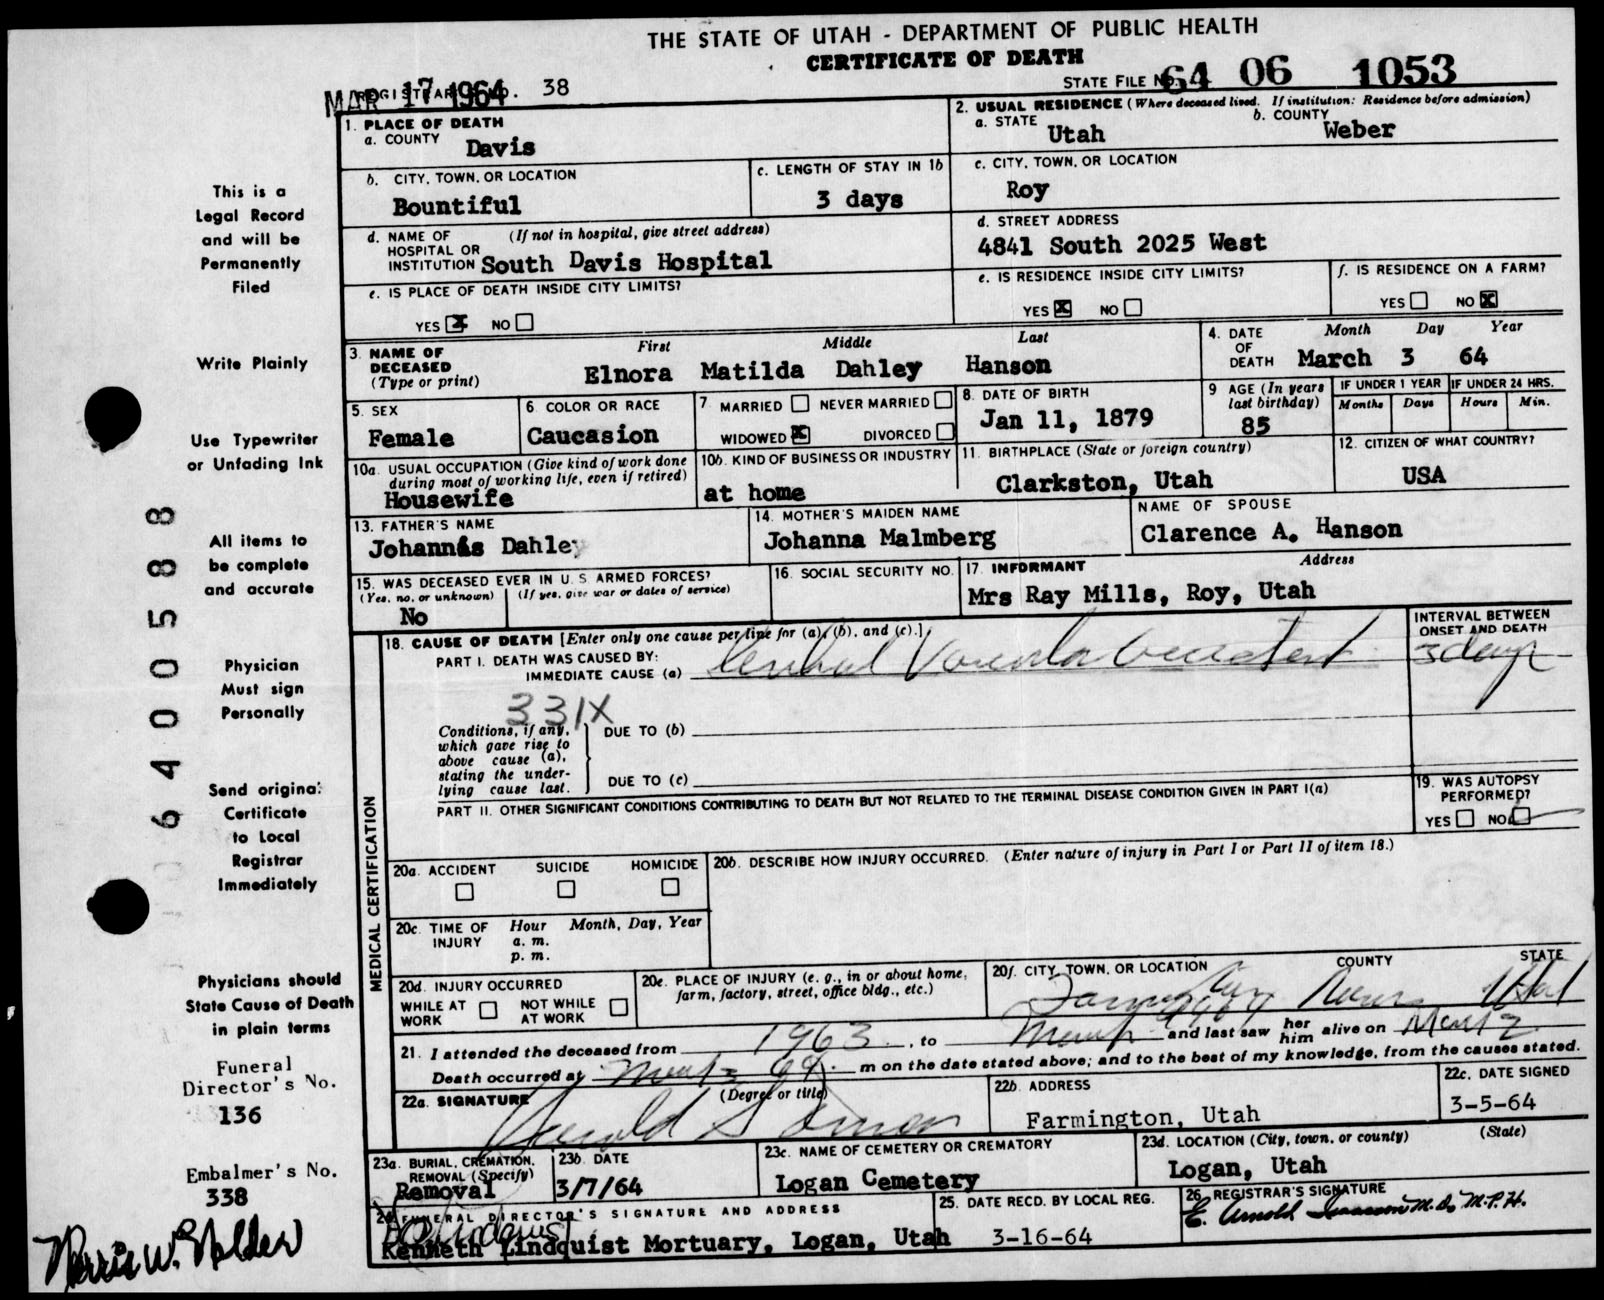 THE STATE OF UTAH - DEPARTMENT OF PUBLIC HEALTH
CERTIFICATE OF DEATH
STATE FILE NO. 64 06 1053
MAR 17 1964
REGISTRAR'S NO. 38
1. PLACE OF DEATH
a. COUNTY Davis
2. USUAL RESIDENCE (Where deceased lived. If institution: Residence before admission)
a. STATE Utah
b. COUNTY Weber
b. CITY, TOWN, OR LOCATION
Bountiful
c. LENGTH OF STAY IN 1b
3 days
c. CITY, TOWN, OR LOCATION
Roy
d. NAME OF HOSPITAL OR INSTITUTION (If not in hospital, give street address)
South Davis Hospital
d. STREET ADDRESS
4841 South 2025 West
e. IS PLACE OF DEATH INSIDE CITY LIMITS?
YES X NO
e. IS RESIDENCE INSIDE CITY LIMITS?
YES X NO
f. IS RESIDENCE ON A FARM?
YES NO X
3. NAME OF DECEASED (Type or print)
First Middle Last
Elnora Matilda Dahley Hanson
4. DATE OF DEATH
Month Day Year
March 3 64
5. SEX
Female
6. COLOR OR RACE
Caucasion
7. MARRIED NEVER MARRIED
WIDOWED X DIVORCED
8. DATE OF BIRTH
Jan 11, 1879
9 AGE (In years last birthday)
85
IF UNDER 1 YEAR
Months Days
IF UNDER 24 HRS.
Hours Min.
10a. USUAL OCCUPATION (Give kind of work done during most of working life, even if retired)
Housewife
10b. KIND OF BUSINESS OR INDUSTRY
at home
11. BIRTHPLACE (State or foreign country)
Clarkston, Utah
12. CITIZEN OF WHAT COUNTRY?
USA
13. FATHER'S NAME
Johannes Dahley
14. MOTHER'S MAIDEN NAME
Johanna Malmberg
NAME OF SPOUSE
Clarence A. Hanson
15. WAS DECEASED EVER IN U.S. ARMED FORCES?
(Yes, no, or unknown) (If yes, give war or dates of service)
No
16. SOCIAL SECURITY NO.
17. INFORMANT Address
Mrs Ray Mills, Roy, Utah
18. CAUSE OF DEATH [Enter only one cause per line for (a), (b), and (c).]
INTERVAL BETWEEN ONSET AND DEATH
PART I. DEATH WAS CAUSED BY:
IMMEDIATE CAUSE (a) Cerebral Vascular Accident
3 days
331X
Conditions, if any, which gave rise to above cause (a), stating the underlying cause last.
DUE TO (b)
DUE TO (c)
PART II. OTHER SIGNIFICANT CONDITIONS CONTRIBUTING TO DEATH BUT NOT RELATED TO THE TERMINAL DISEASE CONDITION GIVEN IN PART I(a)
19. WAS AUTOPSY PERFORMED?
YES NO
MEDICAL CERTIFICATION
20a. ACCIDENT SUICIDE HOMICIDE
20b. DESCRIBE HOW INJURY OCCURRED. (Enter nature of injury in Part I or Part II of item 18.)
20c. TIME OF INJURY
Hour Month, Day, Year
a. m.
p. m.
20d. INJURY OCCURRED
WHILE AT WORK NOT WHILE AT WORK
20e. PLACE OF INJURY (e. g., in or about home, farm, factory, street, office bldg., etc.)
20f. CITY, TOWN, OR LOCATION COUNTY STATE
Farmington Utah
21. I attended the deceased from 1963, to March and last saw her him alive on
Death occurred at m on the date stated above; and to the best of my knowledge, from the causes stated.
22a. SIGNATURE (Degree or title)
22b. ADDRESS
Farmington, Utah
22c. DATE SIGNED
3-5-64
23a. BURIAL, CREMATION, REMOVAL (Specify)
Removal
23b. DATE
3/7/64
23c. NAME OF CEMETERY OR CREMATORY
Logan Cemetery
23d. LOCATION (City, town, or county) (State)
Logan, Utah
24. FUNERAL DIRECTOR'S SIGNATURE AND ADDRESS
Kenneth Lindquist Mortuary, Logan, Utah
25. DATE RECD. BY LOCAL REG.
3-16-64
26. REGISTRAR'S SIGNATURE
E. Arnold Isaacson M.D. M.P.H.
This is a
Legal Record
and will be
Permanently
Filed
Write Plainly
Use Typewriter
or Unfading Ink
All items to
be complete
and accurate
Physician
Must sign
Personally
Send original
Certificate
to Local
Registrar
Immediately
Physicians should
State Cause of Death
in plain terms
Funeral
Director's No.
136
Embalmer's No.
338
6400588